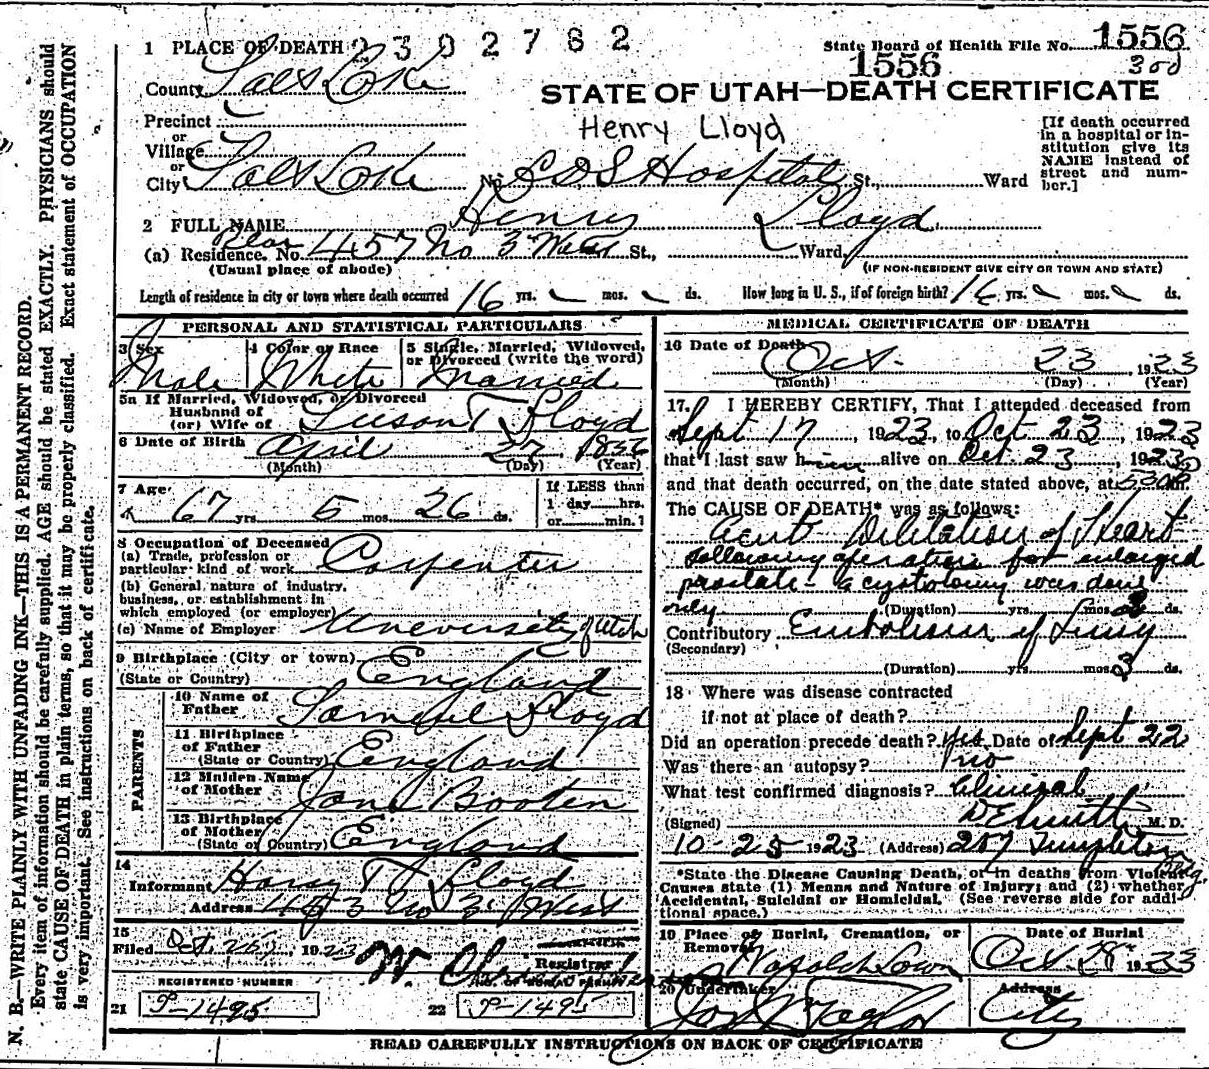 N. B.—WRITE PLAINLY WITH UNFADING INK—THIS IS A PERMANENT RECORD.
Every item of information should be carefully supplied. AGE should be stated EXACTLY. PHYSICIANS should
state CAUSE OF DEATH in plain terms, so that it may be properly classified. Exact statement of OCCUPATION
is very important. See instructions on back of certificate.
1 PLACE OF DEATH 2302762
State Board of Health File No. 1556
1556
County Salt Lake
STATE OF UTAH—DEATH CERTIFICATE
Henry Lloyd
Precinct
or
Village
or
City Salt Lake No. LDS Hospital St., Ward
[If death occurred
in a hospital or in-
stitution give its
NAME instead of
street and num-
ber.]
2 FULL NAME Henry Lloyd
(a) Residence. No. Rear 457 No 3 West St., Ward,
(Usual place of abode)
(IF NON-RESIDENT GIVE CITY OR TOWN AND STATE)
Length of residence in city or town where death occurred 16 yrs. mos. ds. How long in U. S., if of foreign birth? 16 yrs. mos. ds.
PERSONAL AND STATISTICAL PARTICULARS
3 Sex Male
4 Color or Race White
5 Single, Married, Widowed,
or Divorced (write the word)
Married
5a If Married, Widowed, or Divorced
Husband of
(or) Wife of Susan T Lloyd
6 Date of Birth April 27 1856
(Month) (Day) (Year)
7 Age
67 yrs 5 mos 26 ds.
If LESS than
1 day hrs.
or min.?
8 Occupation of Deceased
(a) Trade, profession or
particular kind of work Carpenter
(b) General nature of industry,
business, or establishment in
which employed (or employer)
(c) Name of Employer University of Utah
9 Birthplace (City or town)
(State or Country) England
PARENTS
10 Name of
Father Samuel Lloyd
11 Birthplace
of Father
(State or Country) England
12 Maiden Name
of Mother Jane Booten
13 Birthplace
of Mother
(State or Country) England
14
Informant Harry T Lloyd
Address 453 No 3 West
15
Filed Oct. 25, 1923 W.
Registrar
REGISTERED NUMBER
NO. OF BURIAL PERMIT
21 P-1495 22 P-1495
MEDICAL CERTIFICATE OF DEATH
16 Date of Death
Oct. 23 1923
(Month) (Day) (Year)
17. I HEREBY CERTIFY, That I attended deceased from
Sept 17, 1923, to Oct 23, 1923
that I last saw him alive on Oct 23, 1923
and that death occurred, on the date stated above, at
The CAUSE OF DEATH* was as follows:
Acute Dilitation of Heart
following operation for enlarged
prostate - a cystotomy was done
only
(Duration) yrs mos ds.
Contributory Embolism of Lung
(Secondary)
(Duration) yrs. mos 3 ds.
18 Where was disease contracted
if not at place of death?
Did an operation precede death? Yes Date of Sept 22
Was there an autopsy? No
What test confirmed diagnosis? Clinical
(Signed) M. D.
10-25 1923 (Address) 207 Templeton Bldg.
*State the Disease Causing Death, or in deaths from Violent
Causes state (1) Means and Nature of Injury; and (2) whether
Accidental, Suicidal or Homicidal. (See reverse side for addi-
tional space.)
19 Place of Burial, Cremation, or
Removal Wasatch Lawn
Date of Burial
Oct. 28 1923
20 Undertaker
Taylor
Address
City
READ CAREFULLY INSTRUCTIONS ON BACK OF CERTIFICATE